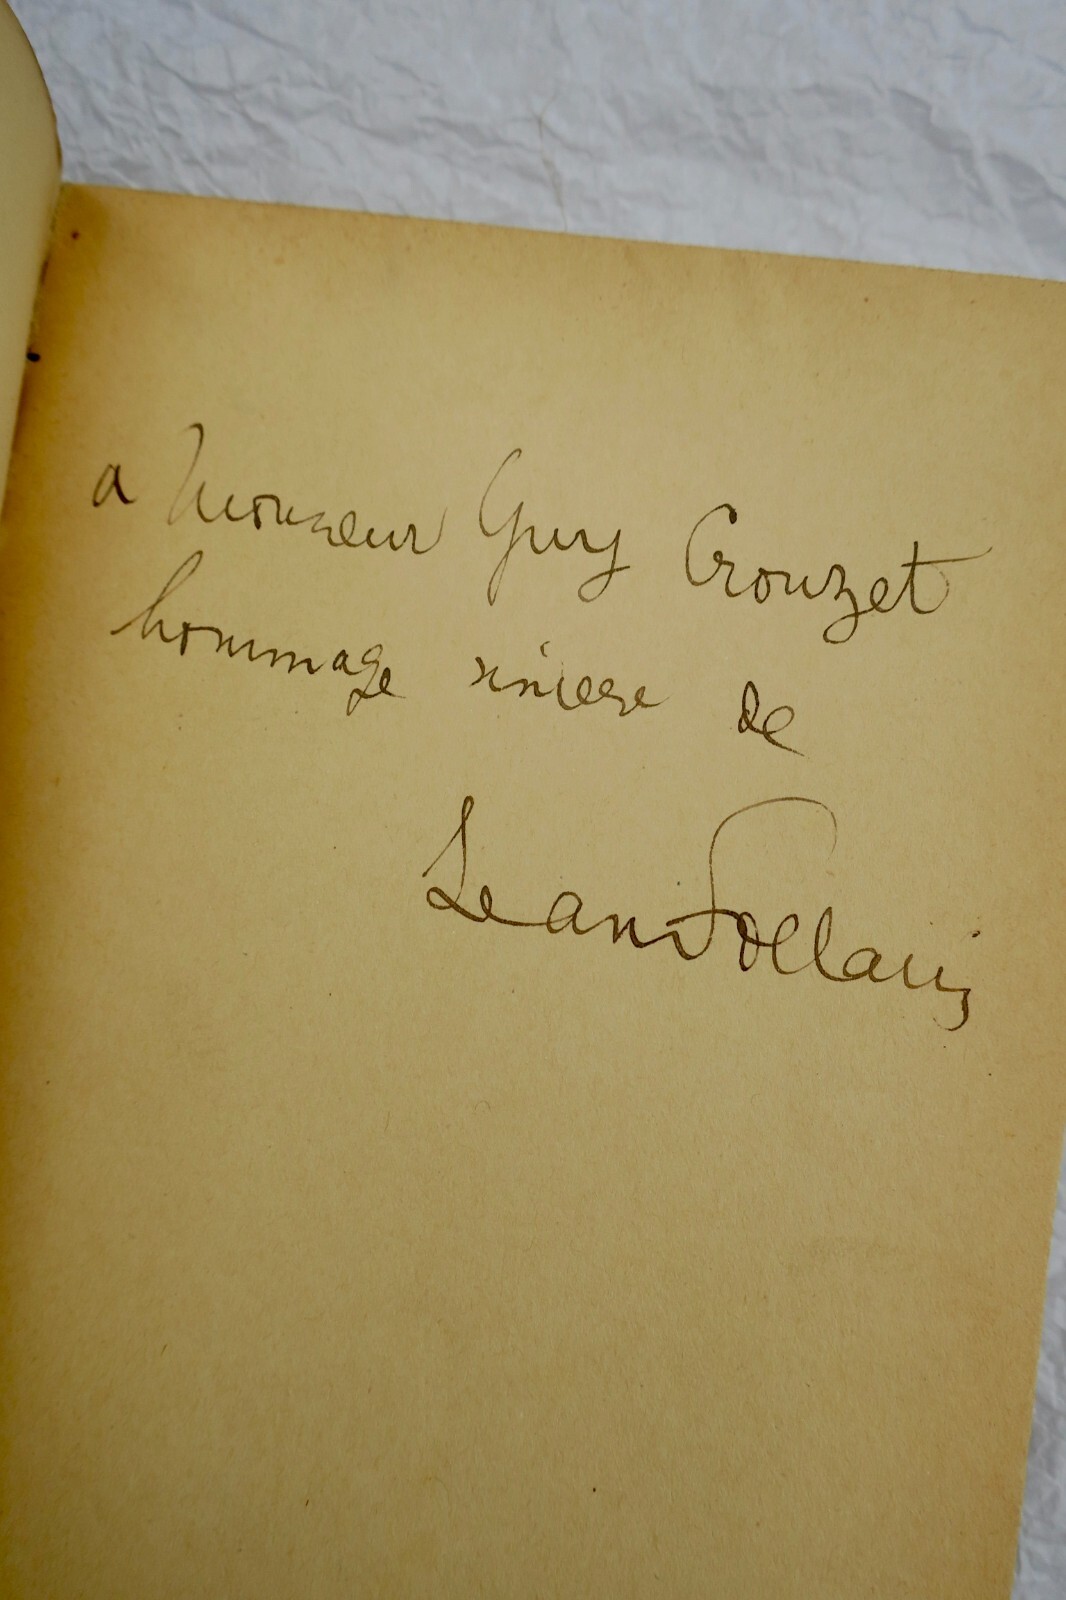 a Monsieur Guy Crouzet
hommage sincere de
Jean Follain